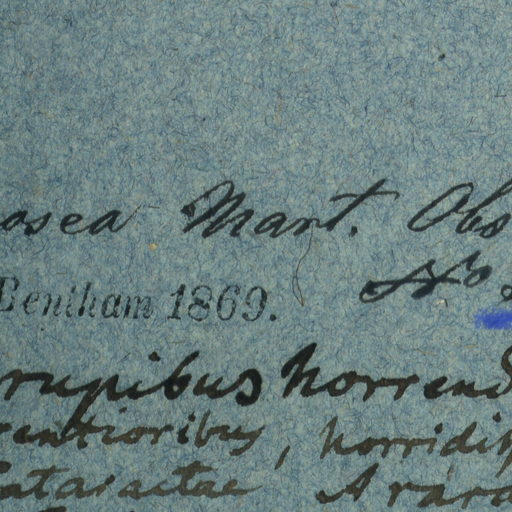 osea Mart. Obs
Bentham 1869. No
rupibus horrend
rentioribus, horridis
Cataractae Arara